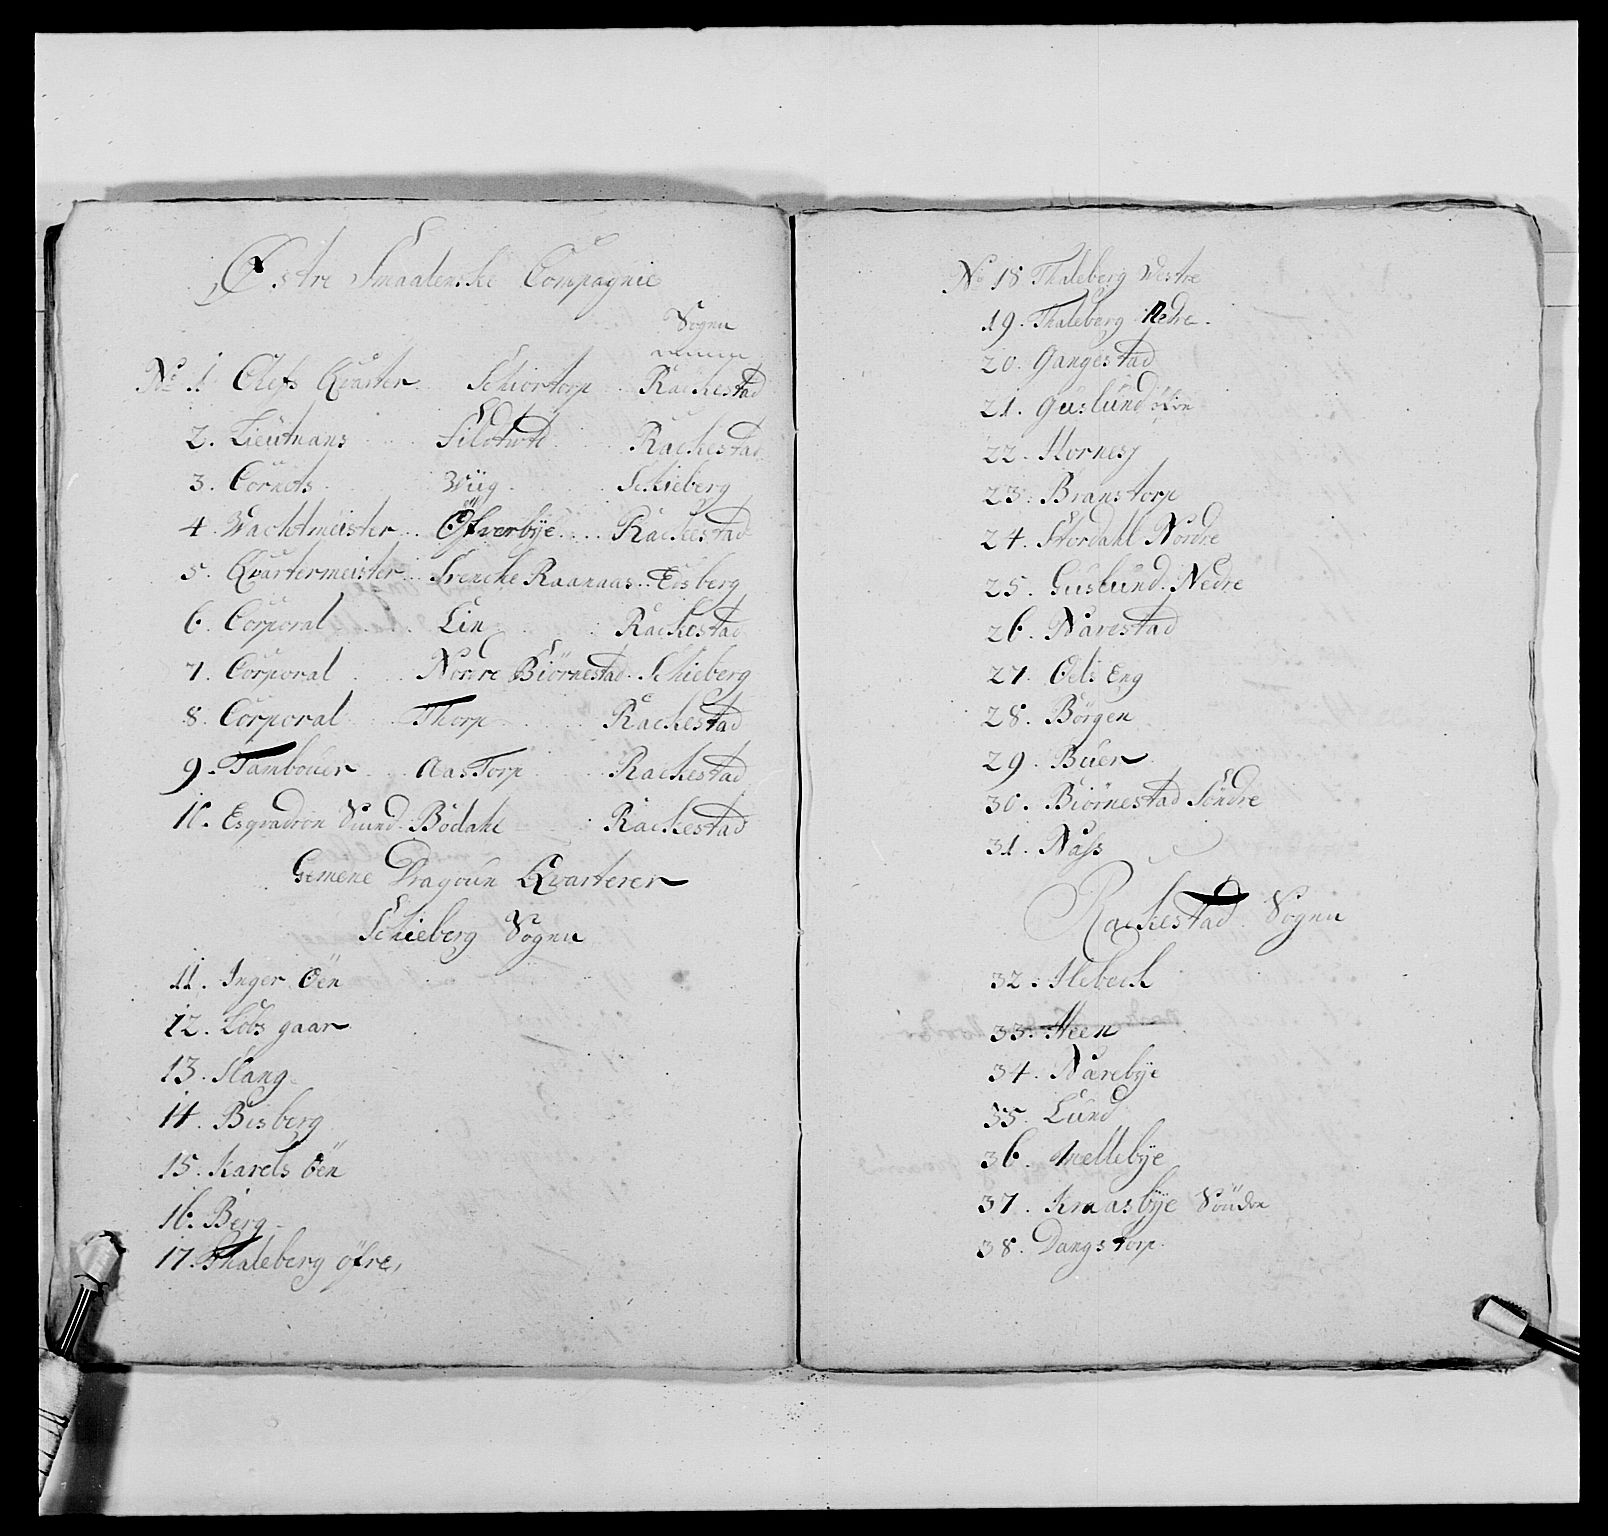 Østre Smaalenske Compagnie
Sogne
No 1 Chefs Qvarter Schiørtorp Rackestad
2. Lieutnans Rackestad
3. Cornets Wiig Schieberg
4. Wachtmeister Øfverbÿe Rackestad
5. Qvartermeister Frencke Raanaas Edsberg
6. Corporal Lin Rackestad
7. Corporal Nordre Biörnestad Schieberg
8. Corporal Thorp Rackestad
9. Tambouer AasTorp Rackestad
10. Esqvadron Bödahl Rackestad
Gemene Dragoun Qvarterer
Schieberg Sogne
11. Inger Öen
12. Lobs gaar
13. Slang
14. Bisberg
15. Karels öen
16. Berg
17. Thaleberg öfre,
No 18 Thaleberg Westre
19. Thaleberg Nedre.
20. Gangestad
21. Guslund öfre
22. Hornes
23. Branstorp
24. Stordahl Nordre
25. Guslund Nedre
26. Narestad
27. Oels Eng
28. Börgen
29. Buer
30. Biörnestad Söndre
31. Næss
Rackestad Sogne
32. Flebeck
33. Heen
34. Nærebÿe
35. Lund
36. Mellebÿe
37. Kraasbÿe Sönder
38. Dangstorp